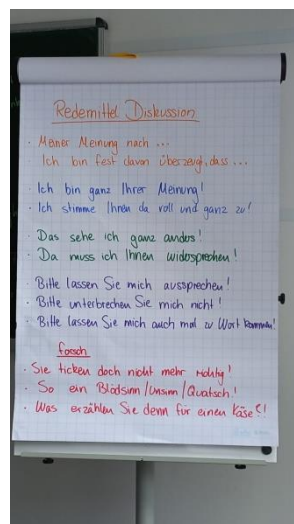 Redemittel Diskussion
· Meiner Meinung nach ...
· Ich bin fest davon überzeugt, dass ...
· Ich bin ganz Ihrer Meinung!
· Ich stimme Ihnen da voll und ganz zu!
· Das sehe ich ganz anders!
· Da muss ich Ihnen widersprechen!
· Bitte lassen Sie mich aussprechen!
· Bitte unterbrechen Sie mich nicht!
· Bitte lassen Sie mich auch mal zu Wort kommen!
forsch
· Sie ticken doch nicht mehr richtig!
· So ein Blödsinn/Unsinn/Quatsch!
· Was erzählen Sie denn für einen Käse?!